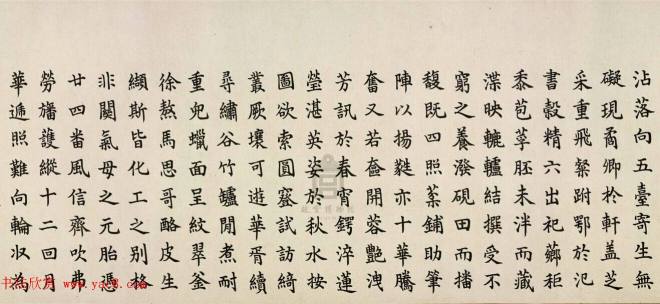 沾落向五臺寄生無
礙現喬卿於軒蓋芝
采重飛跗鄂於氾
書穀精六出祀薌秬
黍苞莩胚未泮而藏
渫映轆轤結撰受不
窮之養潑硯田而播
馥既四照葉鋪助筆
陣以揚蕤亦十華騰
奮又若奩開蓉艷洩
芳訊於春宵鍔淬蓮
瑩湛英姿於秋水按
圖欲索圓試訪綺
叢厥壤可遊華胥續
尋繡谷竹爐閒煮耐
重兜蠟面呈紋翠釜
徐熬馬思哥酪皮生
纈斯皆化工之別格
非關氣母之元胎憑
廿四番風信齊吹弗
勞旛護縱十二回月
華遞照難向輪収為